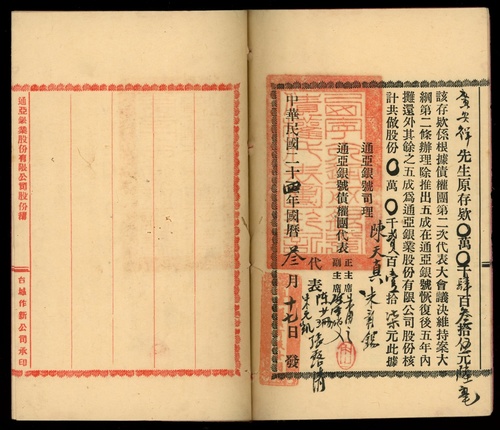 先生原存欵〇萬〇千肆百叁拾伍元陸毫
該存欵係根據債權團第二次代表大會議決維持案大
綱第二條辦理除推出五成在通亞銀號恢復後五年內
攤還外其餘之五成爲通亞銀業股份有限公司股份核
計共做股份〇萬〇千貳百壹拾柒元此據
通亞銀號司理 陳天真
通亞銀號債權團代表
正主席
副主席
代表
中華民國二十四年國曆叁月十七日發
通亞銀業股份有限公司股份
台城作新公司承印